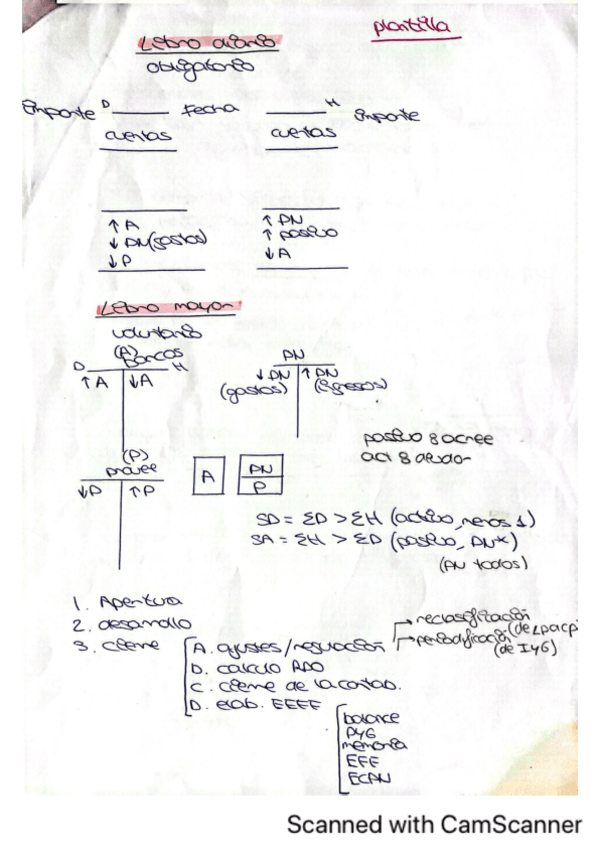 plantilla
Libro diario
obligatorio
Importe D Fecha H Importe
cuentas cuentas
↑ A ↑ PN
↓ PN (gastos) ↑ pasivo
↓ P ↓ A
Libro mayor
voluntario
(A)
Bancos
D H
↑ A ↓ A
PN
↓ PN ↑ PN
(gastos) (ingresos)
pasivo 8 acree
act 8 deudor
(P)
provee
↓ P ↑ P
A PN
P
SD = ΣD > ΣH (activo, menos 1)
SA = ΣH > ΣD (pasivo, PN*)
(AN todos)
1. Apertura
2. desarrollo
3. cierre
A. ajustes/regulación → reclasificación (de LP a CP)
→ periodificación (de I y G)
B. calculo RDO
C. cierre de la contab.
D. elab. EEFF
balance
PyG
memoria
EFE
ECPN
Scanned with CamScanner